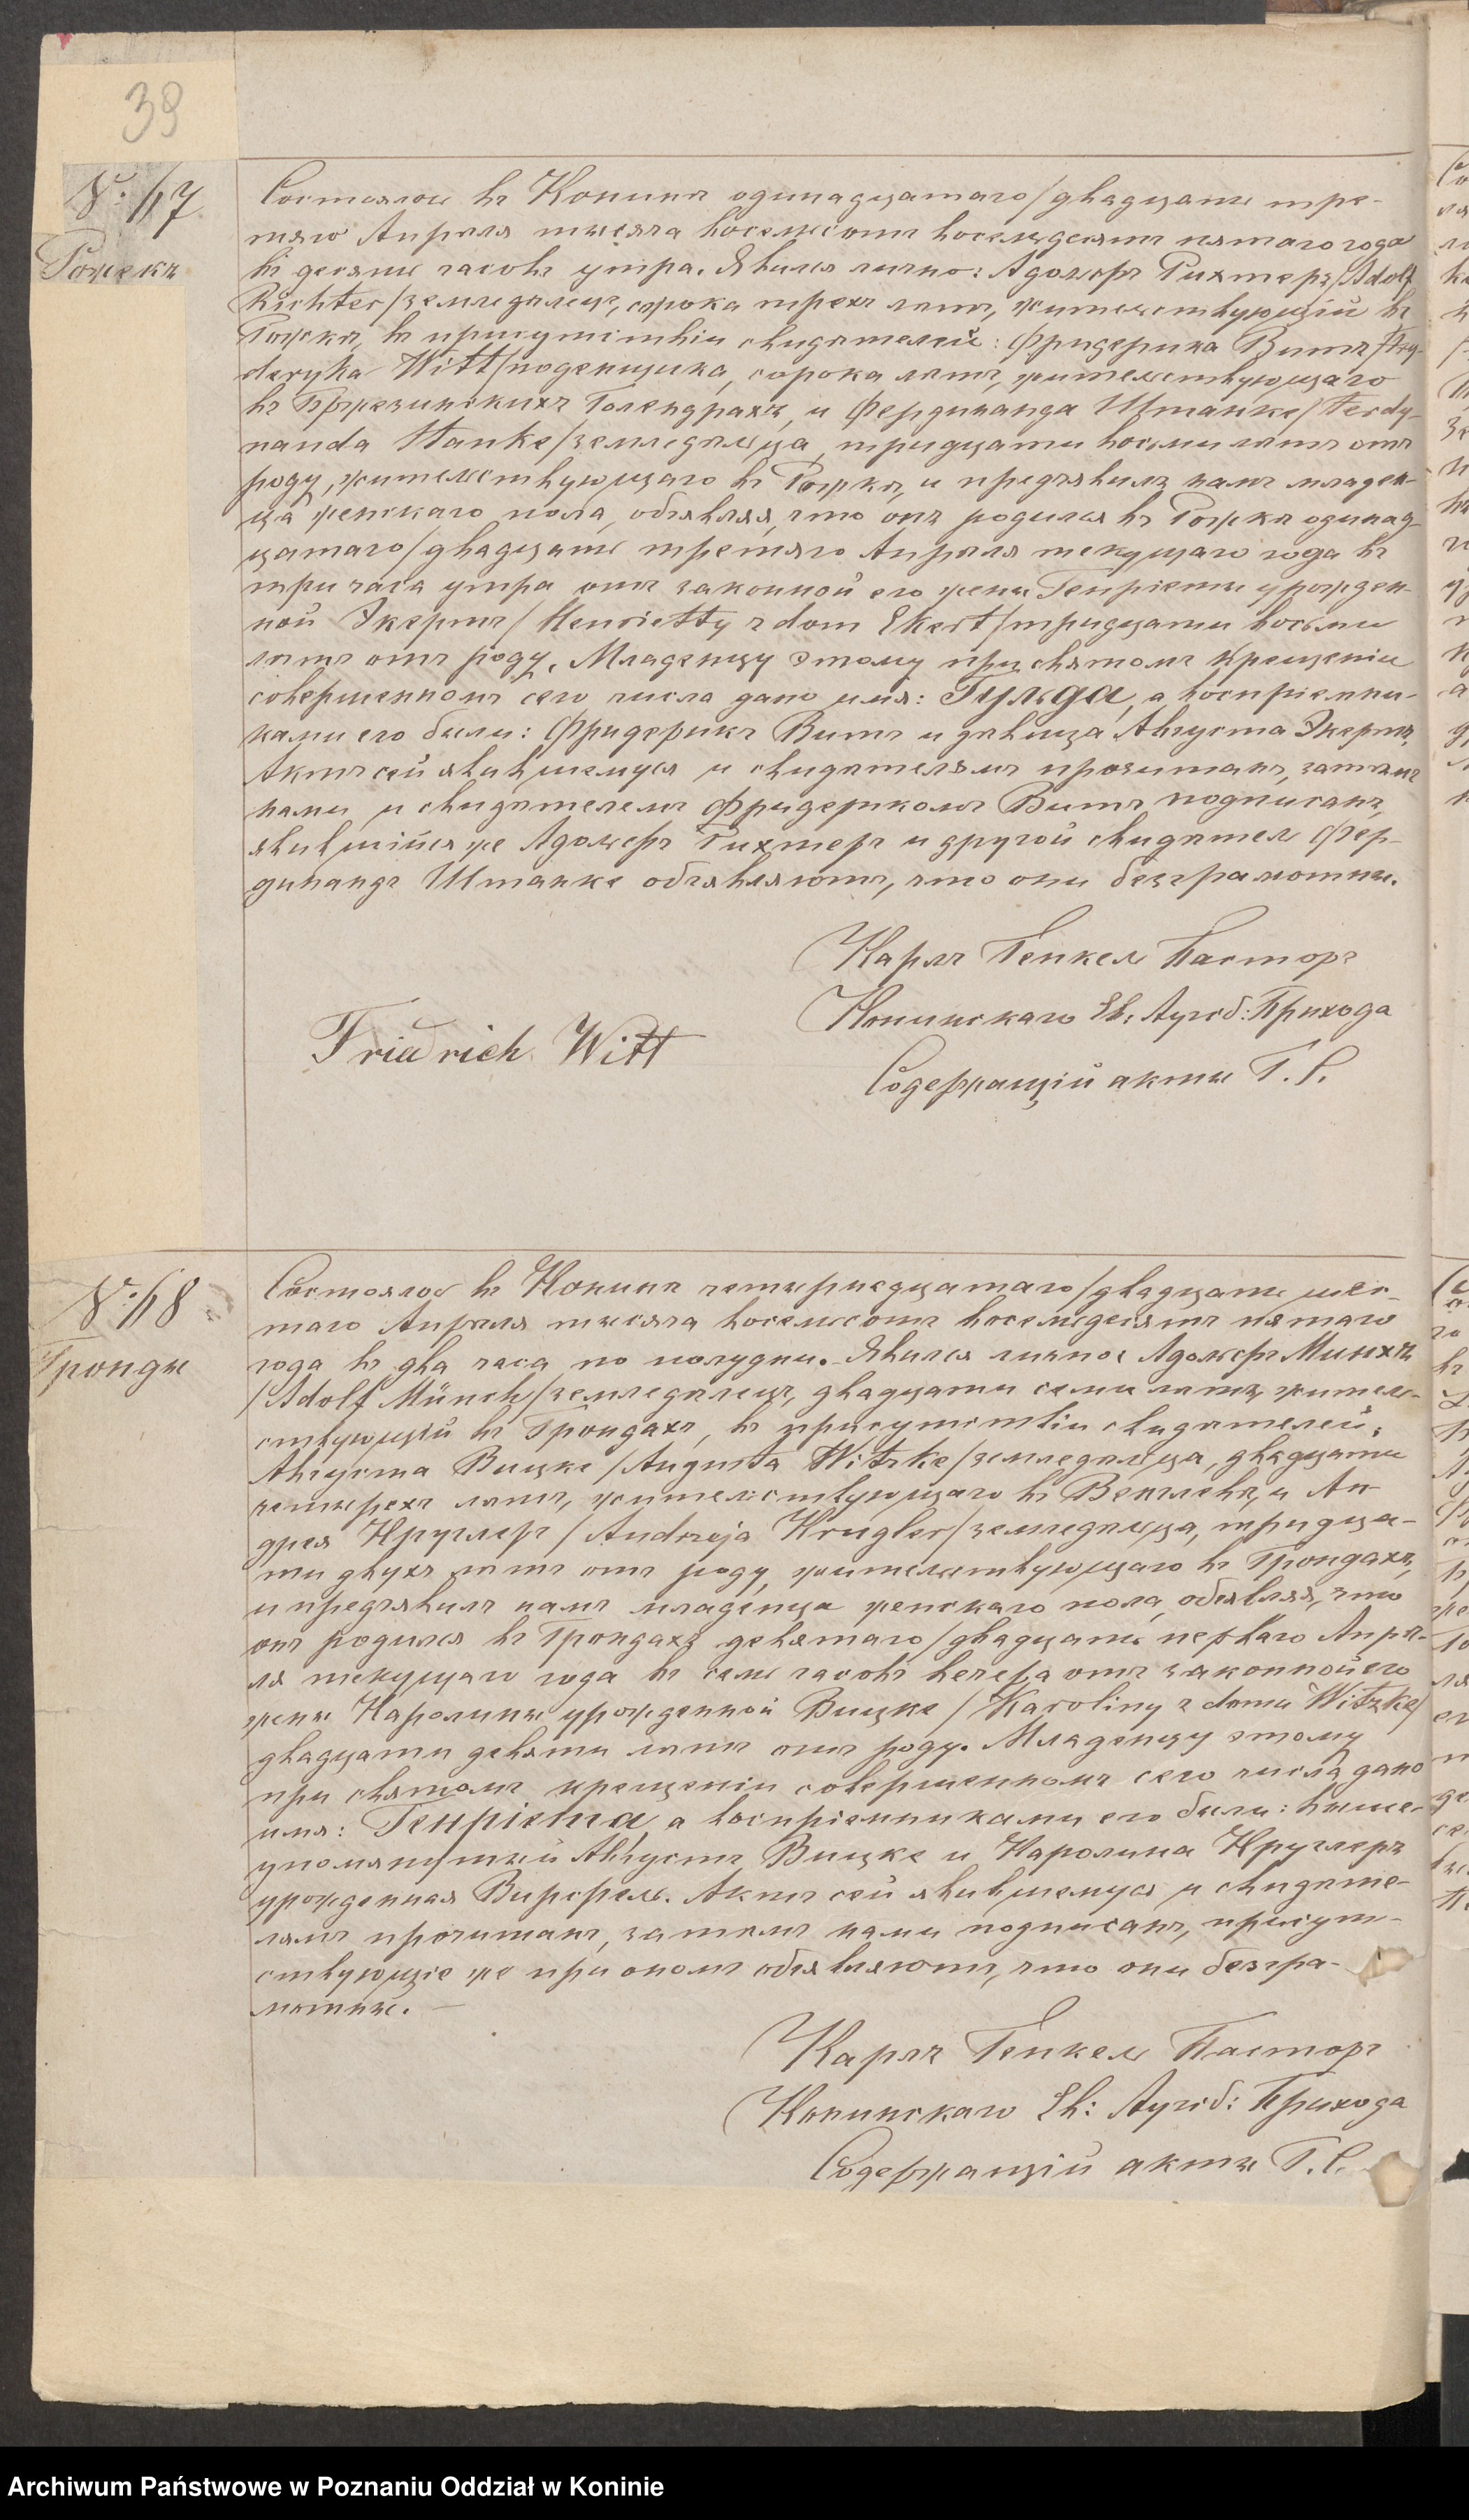 39
№ 117
Рожекъ
Состоялось въ Конинѣ одинадцатаго/двадцать тре-
тяго Апрѣля тысяча восемьсотъ восемьдесятъ пятаго года
въ десять часовъ утра. Явился лично: Адольфъ Рихтеръ/Adolf
Richter/земледѣлецъ, сорока трехъ лѣтъ, жительствующій въ
Рожкѣ, въ присутствіи свидѣтелей: Фридерика Витъ/Fry-
deryka Witt/поденщика, сорока лѣтъ, жительствующаго
въ Бржезинскихъ Голендрахъ, и Фердинанда Штанке/Ferdy-
nanda Stanke/земледѣльца, тридцати восьми лѣтъ отъ
роду, жительствующаго въ Рожкѣ, и предъявилъ намъ младен-
ца женскаго пола, объявляя, что онъ родился въ Рожкѣ одинад-
цатаго/двадцать третяго Апрѣля текущаго года въ
три часа утра отъ законной его жены Генріеты урожден-
ной Экертъ/Henrietty z dom Ekert/тридцати восьми
лѣтъ отъ роду. Младенцу этому при святомъ крещеніи
совершенномъ сего числа дано имя: Гульда, а воспріемни-
ками его были: Фридерикъ Витъ и дѣвица Августа Экертъ.
Актъ сей явившемуся и свидѣтелямъ прочитанъ, затѣмъ
нами и свидѣтелемъ Фридерикомъ Витъ подписанъ,
явившійся же Адольфъ Рихтеръ и другой свидѣтель Фер-
динандъ Штанке объявляютъ, что они безграмотны.
Карлъ Генкель Пасторъ
Конинскаго Ев. Аугсб: Прихода
Friedrich Witt
Содержащій акты Г. С.
№ 118
Гронды
Состоялось въ Конинѣ четырнадцатаго/двадцать шес-
таго Апрѣля тысяча восемьсотъ восемьдесятъ пятаго
года въ два часа по полудни. Явился лично: Адольфъ Минхъ
/Adolf Münch/земледѣлецъ, двадцати семи лѣтъ, житель-
ствующій въ Грондахъ, въ присутствіи свидѣтелей:
Августа Вицке/Augusta Witzke/земледѣльца, двадцати
четырехъ лѣтъ, жительствующаго въ Венглевѣ, и Ан-
дрея Круглеръ/Andrzeja Krugler/земледѣльца, тридца-
ти двухъ лѣтъ отъ роду, жительствующаго въ Грондахъ,
и предъявилъ намъ младенца женскаго пола, объявляя, что
онъ родился въ Грондахъ девятаго/двадцать перваго Апрѣ-
ля текущаго года въ семь часовъ вечера отъ законной его
жены Каролины урожденной Вицке/Karoliny z domu Witzke/
двадцати девяти лѣтъ отъ роду. Младенцу этому
при святомъ крещеніи совершенномъ сего числа дано
имя: Генріета, а воспріемниками его были: выше-
упомянутый Августъ Вицке и Каролина Круглеръ
урожденная Вирфель. Актъ сей явившемуся и свидѣте-
лямъ прочитанъ, затѣмъ нами подписанъ, присут-
ствующіе же при ономъ объявляютъ, что они безгра-
мотны. —
Карлъ Генкель Пасторъ
Конинскаго Ев: Аугсб: Прихода
Содержащій акты Г. С.
Archiwum Państwowe w Poznaniu Oddział w Koninie